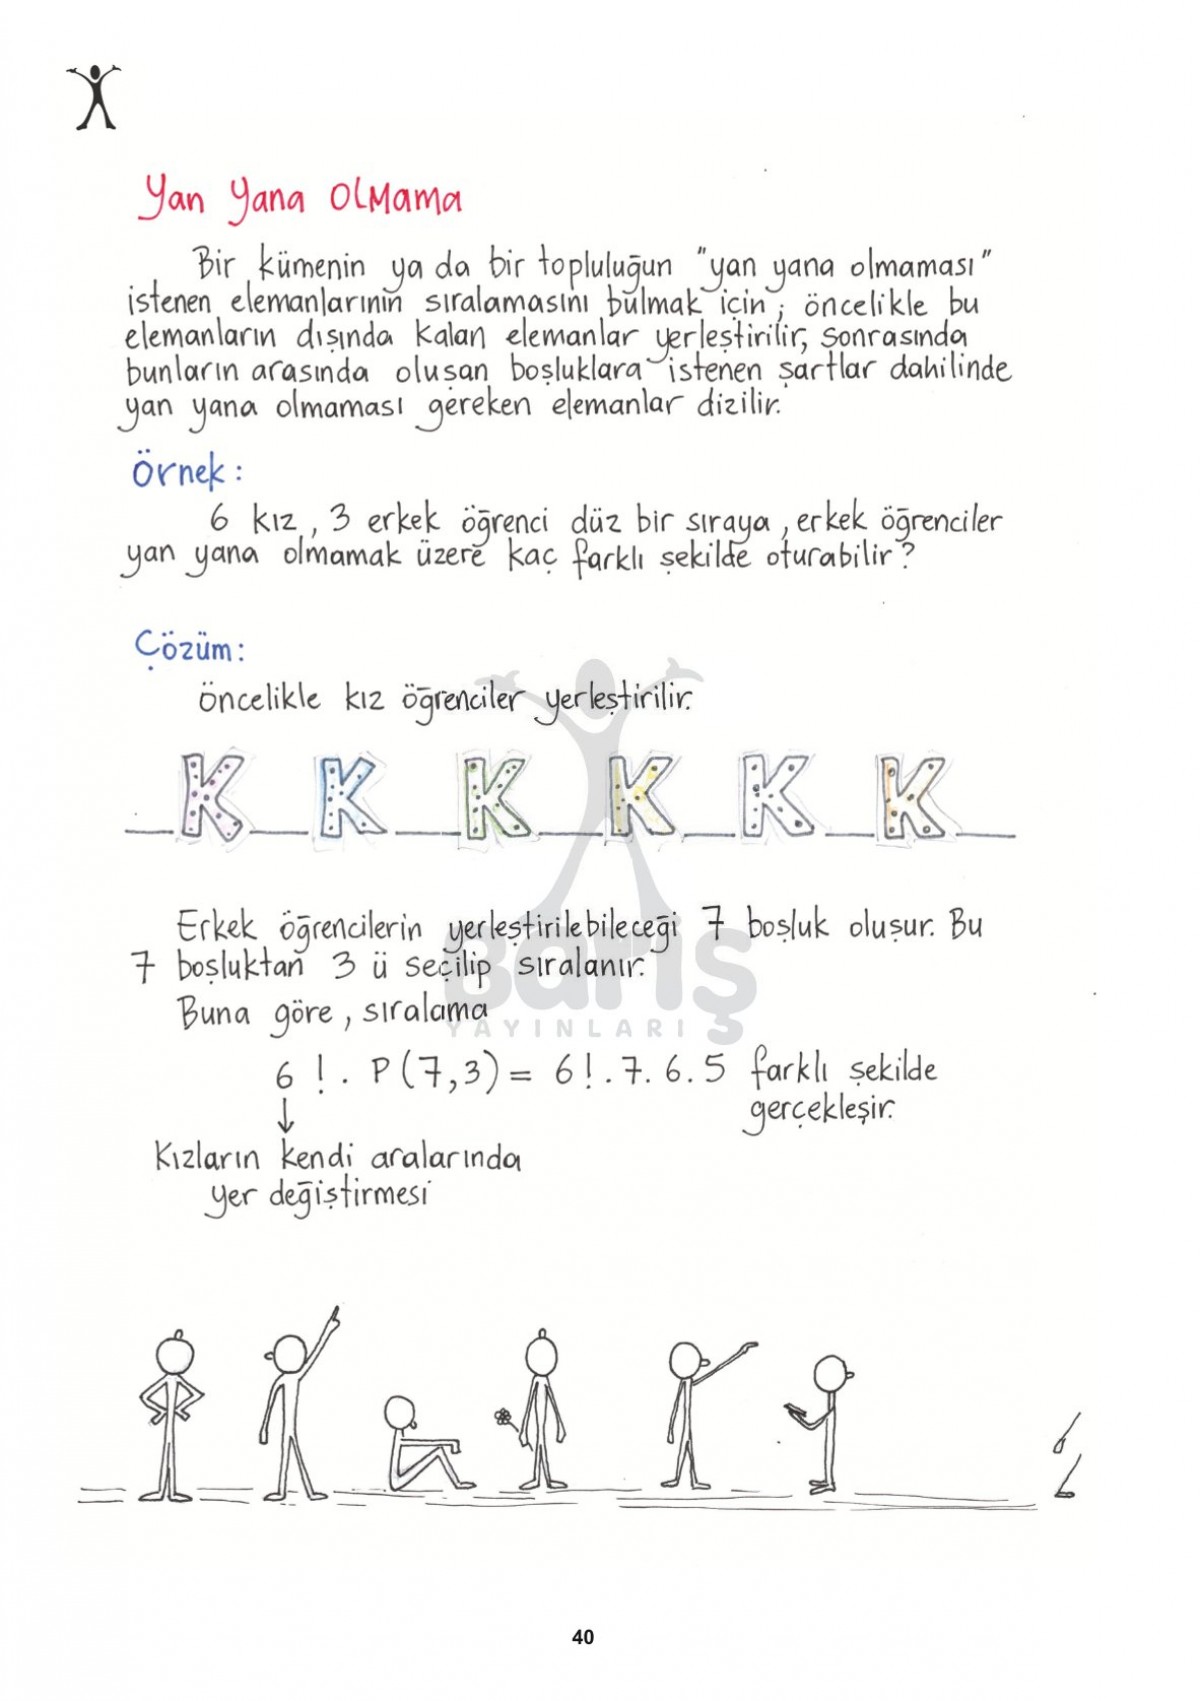 Yan Yana Olmama
Bir kümenin ya da bir topluluğun "yan yana olmaması"
istenen elemanlarının sıralamasını bulmak için; öncelikle bu
elemanların dışında kalan elemanlar yerleştirilir, sonrasında
bunların arasında oluşan boşluklara istenen şartlar dahilinde
yan yana olmaması gereken elemanlar dizilir.
Örnek:
6 kız, 3 erkek öğrenci düz bir sıraya, erkek öğrenciler
yan yana olmamak üzere kaç farklı şekilde oturabilir?
Çözüm:
Öncelikle kız öğrenciler yerleştirilir.
_ K _ K _ K _ K _ K _ K _
Erkek öğrencilerin yerleştirilebileceği 7 boşluk oluşur. Bu
7 boşluktan 3 ü seçilip sıralanır.
Buna göre, sıralama
6!. P(7,3) = 6!.7.6.5 farklı şekilde
gerçekleşir.
↓
Kızların kendi aralarında
yer değiştirmesi
Barış
YAYINLARI
40